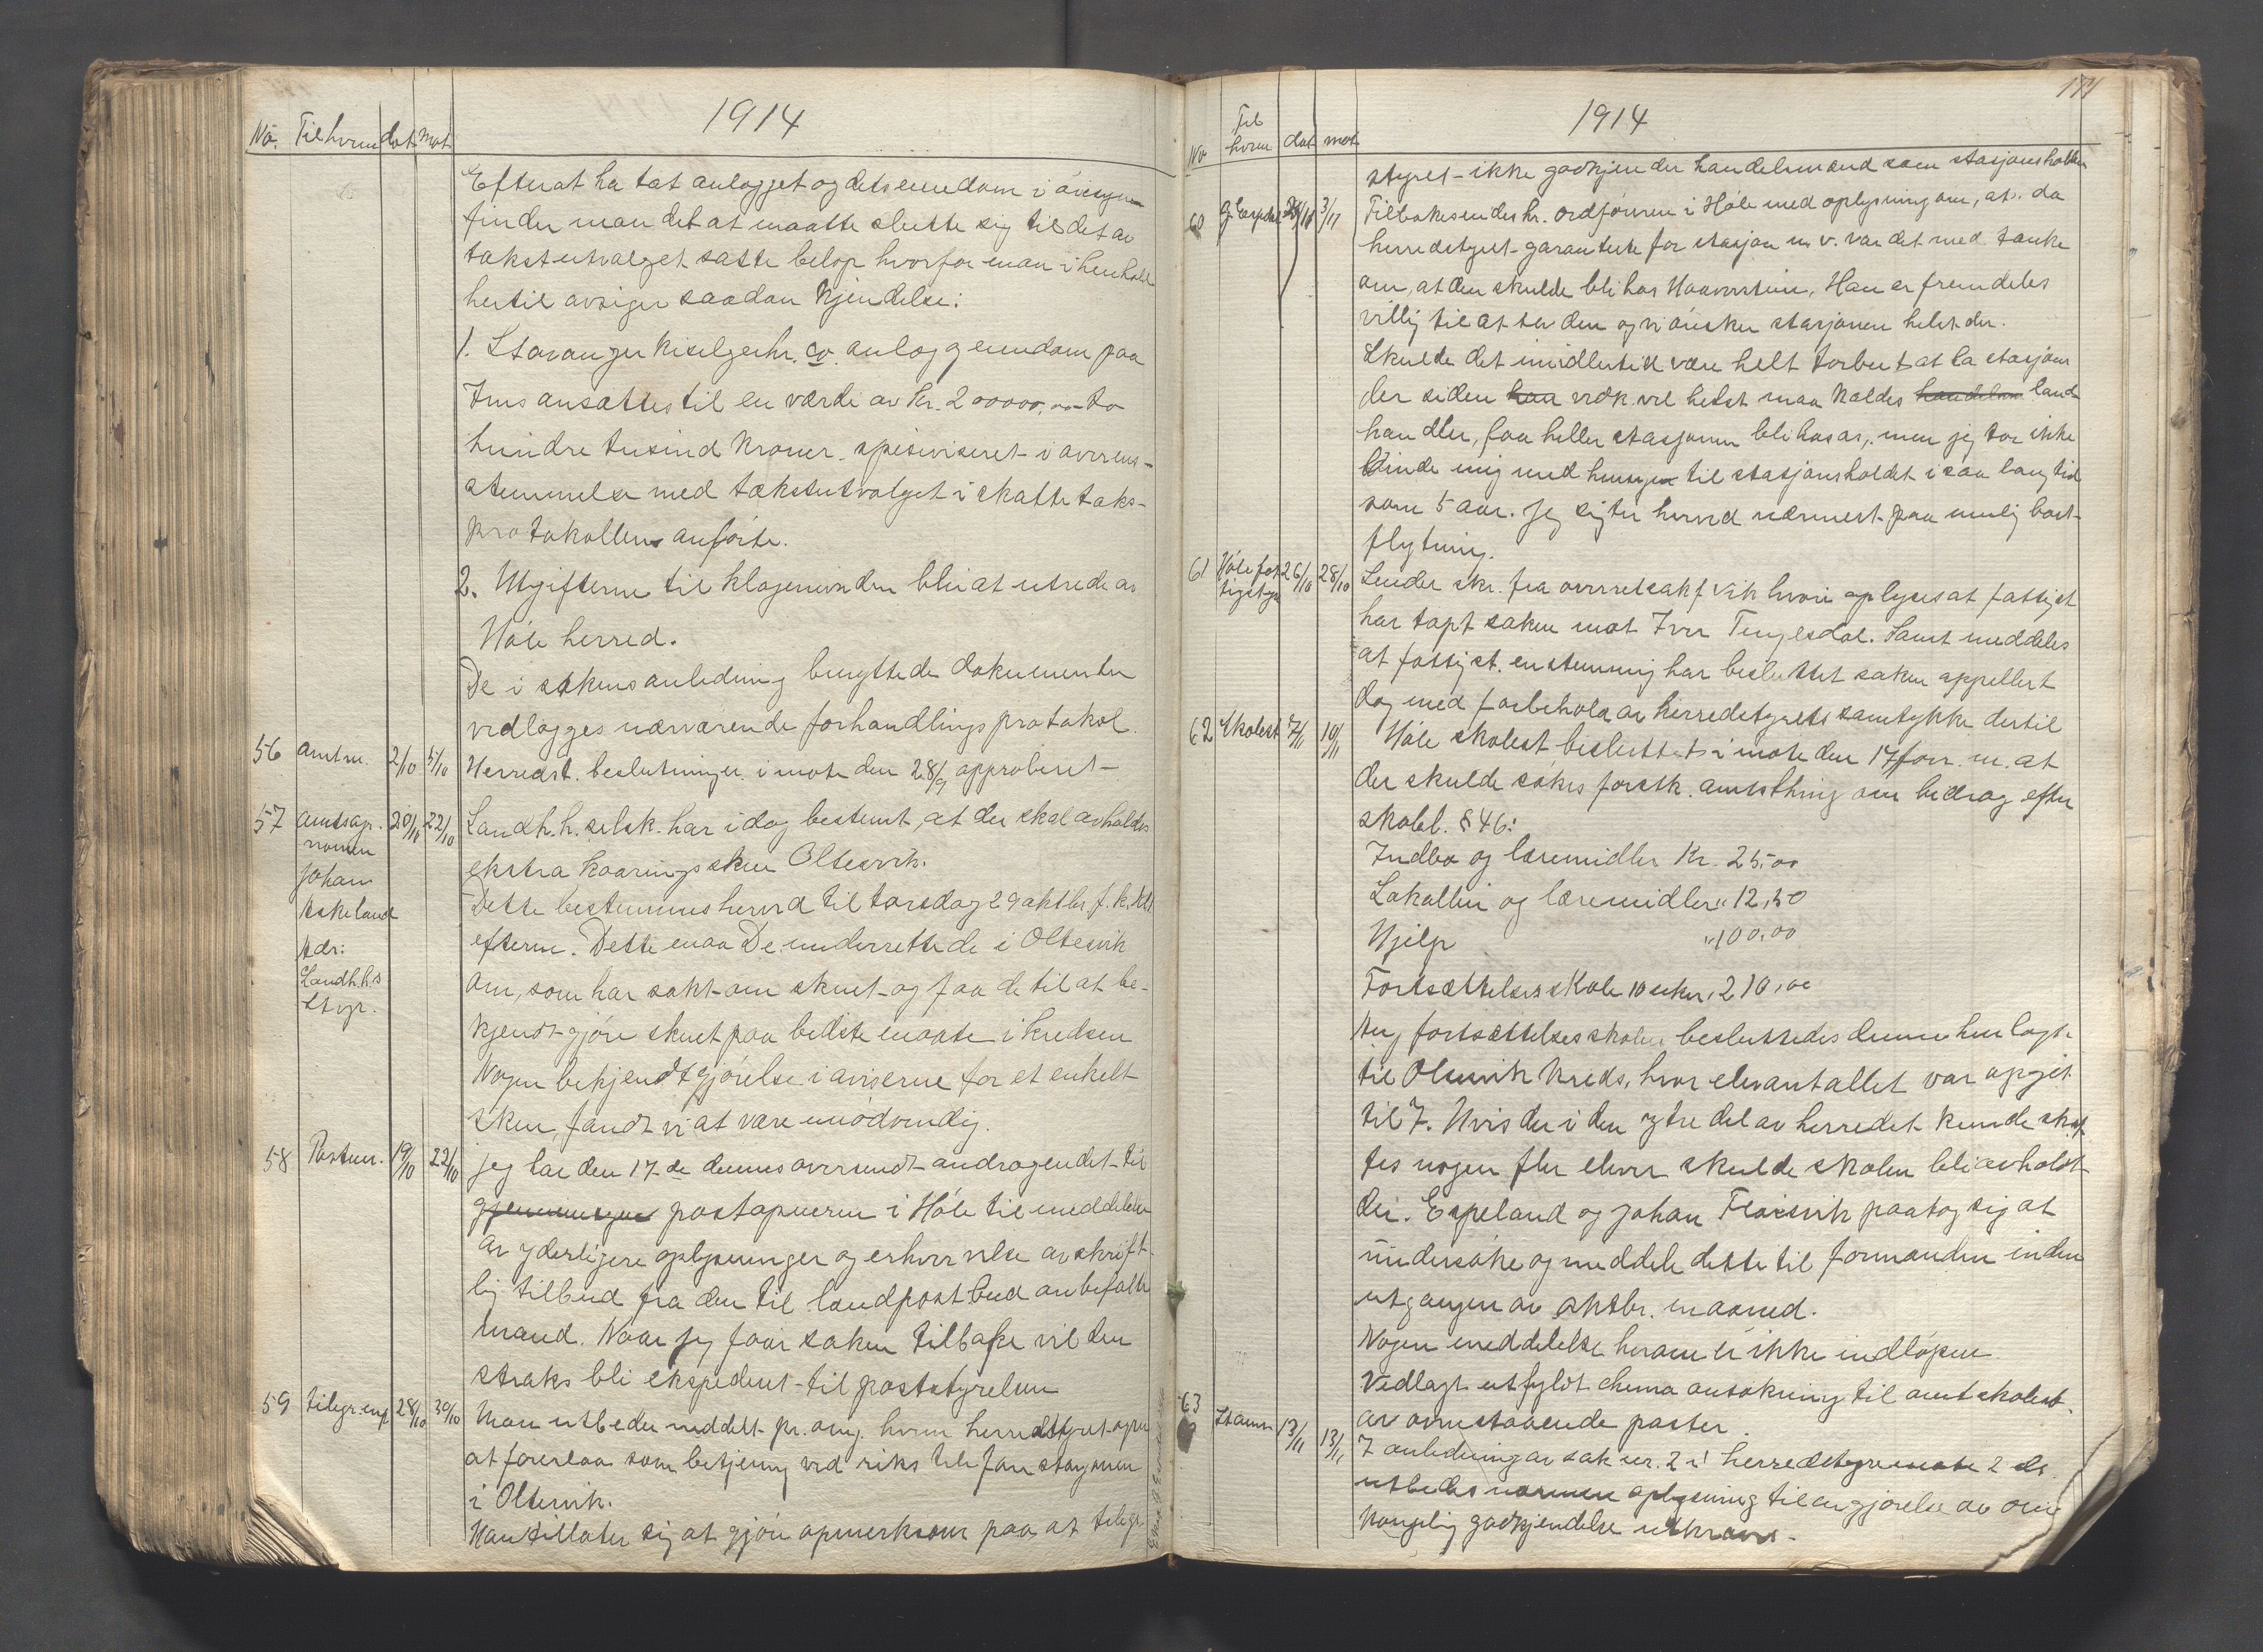 1914
No. Til hvem dat mot
Efter at ha tat anlægget og dets eiendom i øiesyn
finder man det at maatte slutte sig til det av
takstutvalget satte beløp hvorfor man i henhold
hertil avsiger saadan Kjendelse:
1. Stavanger Kiselguhr. co. anlæg og eiendom paa
Ims ansættes til en værdi av Kr. 200000,00 to
hundre tusind Kroner. spesiviseret i overens-
stemmelse med takstutvalget i skattetakst-
protokollen anførte.
2. Utgifterne til klagenevnden blir at utrede av
Høle herred.
De i sakens anledning benyttede dokumenter
vedlægges nærværende forhandlingsprotokol.
56 Amtm. 2/10 5/10 Herredst. beslutninger i møte den 28/9 approberet
57 Amtsagronomen Johan Askeland Adr: Landh.h.s Stvgr. 20/10 22/10 Landh.h. selsk. har idag bestemt, at der skal avholdes
ekstra kaaringsskue Oltesvik.
Dette bestemmes herved til torsdag 29 oktbr. f.k. kl 1
efterm. Dette maa De underrette de i Oltesvik
om, som har søkt om skuet og faa de til at be-
kjendtgjøre skuet paa bedste maate i kredsen
Nogen bekjendtgjørelse i aviserne for et enkelt
skue, fandt vi at være unødvendig.
58 Postm. 19/10 22/10 Jeg har den 17-de dennes oversendt andragendet til
postaapneren i Høle til meddelelse
av yderligere oplysninger og erhvervelse av skrift-
lig tilbud fra den til landpostbud anbefalte
mand. Naar jeg faar saken tilbake vil den
straks bli ekspedert til poststyrelsen
59 telegr.insp. 28/10 30/10 Man utbeder meddelt pr. omg. hvem herredstyret agter
at foreslaa som betjening ved rikstelefonstasjonen
i Oltesvik.
Man tillater sig at gjøre opmerksom paa at telegr.
171
1914
No Til hvem dat mot
styret ikke godkjender handelsmand som stasjonsholder
60 3/11 Tilbakesendes hr. ordføreren i Høle med oplysning om, at. da
herredstyret garanterte for stasjon m v. var det med tanke
om, at den skulde bli hos Haaverstein. Han er fremdeles
villig til at ta den og vi ønsker stasjonen helst der.
Skulde det imidlertid være helt forbudt at ha stasjon
der siden han vedk. vel helst maa kaldes handelsm land
handler, faar heller stasjonen bli hos os, men jeg tør ikke
binde mig med hensyn til stasjonsholdet i saa lang tid
som 5 aar. Jeg sigter herved nærmest paa mulig bort-
flytning.
61 Høle fattigstyre 26/10 28/10 Sender skr. fra overretssakf Vik hvori oplyses at fattigst
har tapt saken mot Iver Tengesdal. Samt meddeles
at fattigst. enstemmig har besluttet saken appellert
dog med forbehold av herredstyrets samtykke dertil
62 Skolest 7/11 10/11 Høle skolest besluttet i møte den 17 forr. m. at
der skulde søkes forstk. amtsthing om bidrag efter
skolel. § 46:
Indbo og læremidler Kr. 25,00
Lokalleie og læremidler " 12,50
Hjelp " 100,00
Fortsættelsesskole 10 uker. 210,00
Ang fortsættelsesskolen besluttedes denne henlagt
til Olsvik Kreds, hvor elevantallet var opgit
til 7. Hvis der i den ytre del av herredet kunde skaf-
fes nogen fler elever skulde skolen bli avholdt
der. Espeland og Johan Fløisvik paatog sig at
undersøke og meddele dette til formanden inden
utgangen av oktbr. maaned.
Nogen meddelelse herom er ikke indløpen.
Vedlagt utfyldt skema ansøkning til amtsskolest.
av ovenstaaende poster.
63 13/11 13/11 I anledning av sak nr. 2 i herredstyremøte 2 ds.
utbedes nærmere oplysning til avgjørelse av om
Kongelig godkjendelse utkræves.